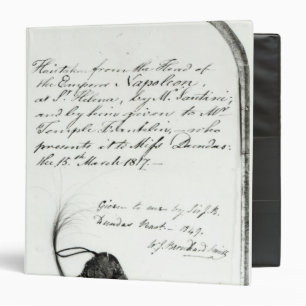 Hair taken from the Head of
the Emperor Napoleon,
at St. Helena, by Mr. Santini;
and by him given to Mr.
Temple Franklin, who
presents it to Miss Dundas.
the 15th March 1817.
Given to me by Miss
Dundas 1849.